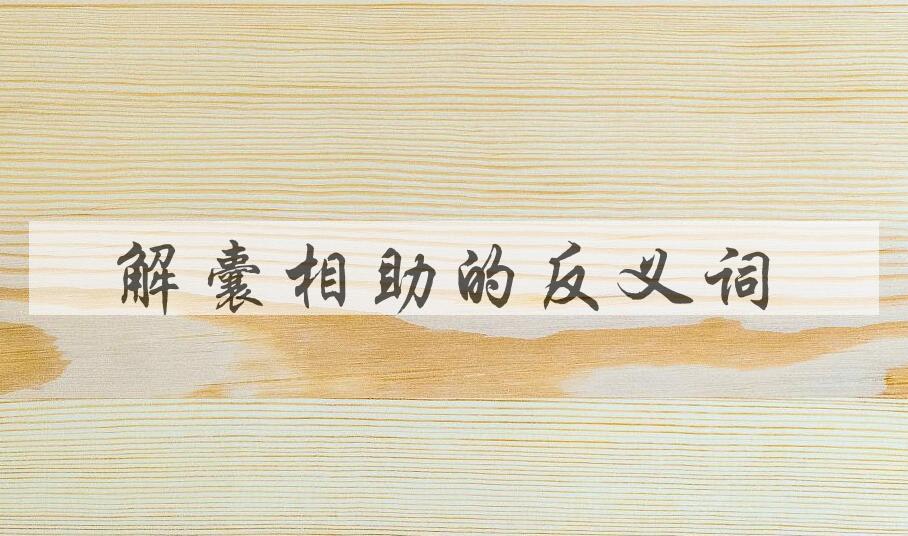 解囊相助的反义词